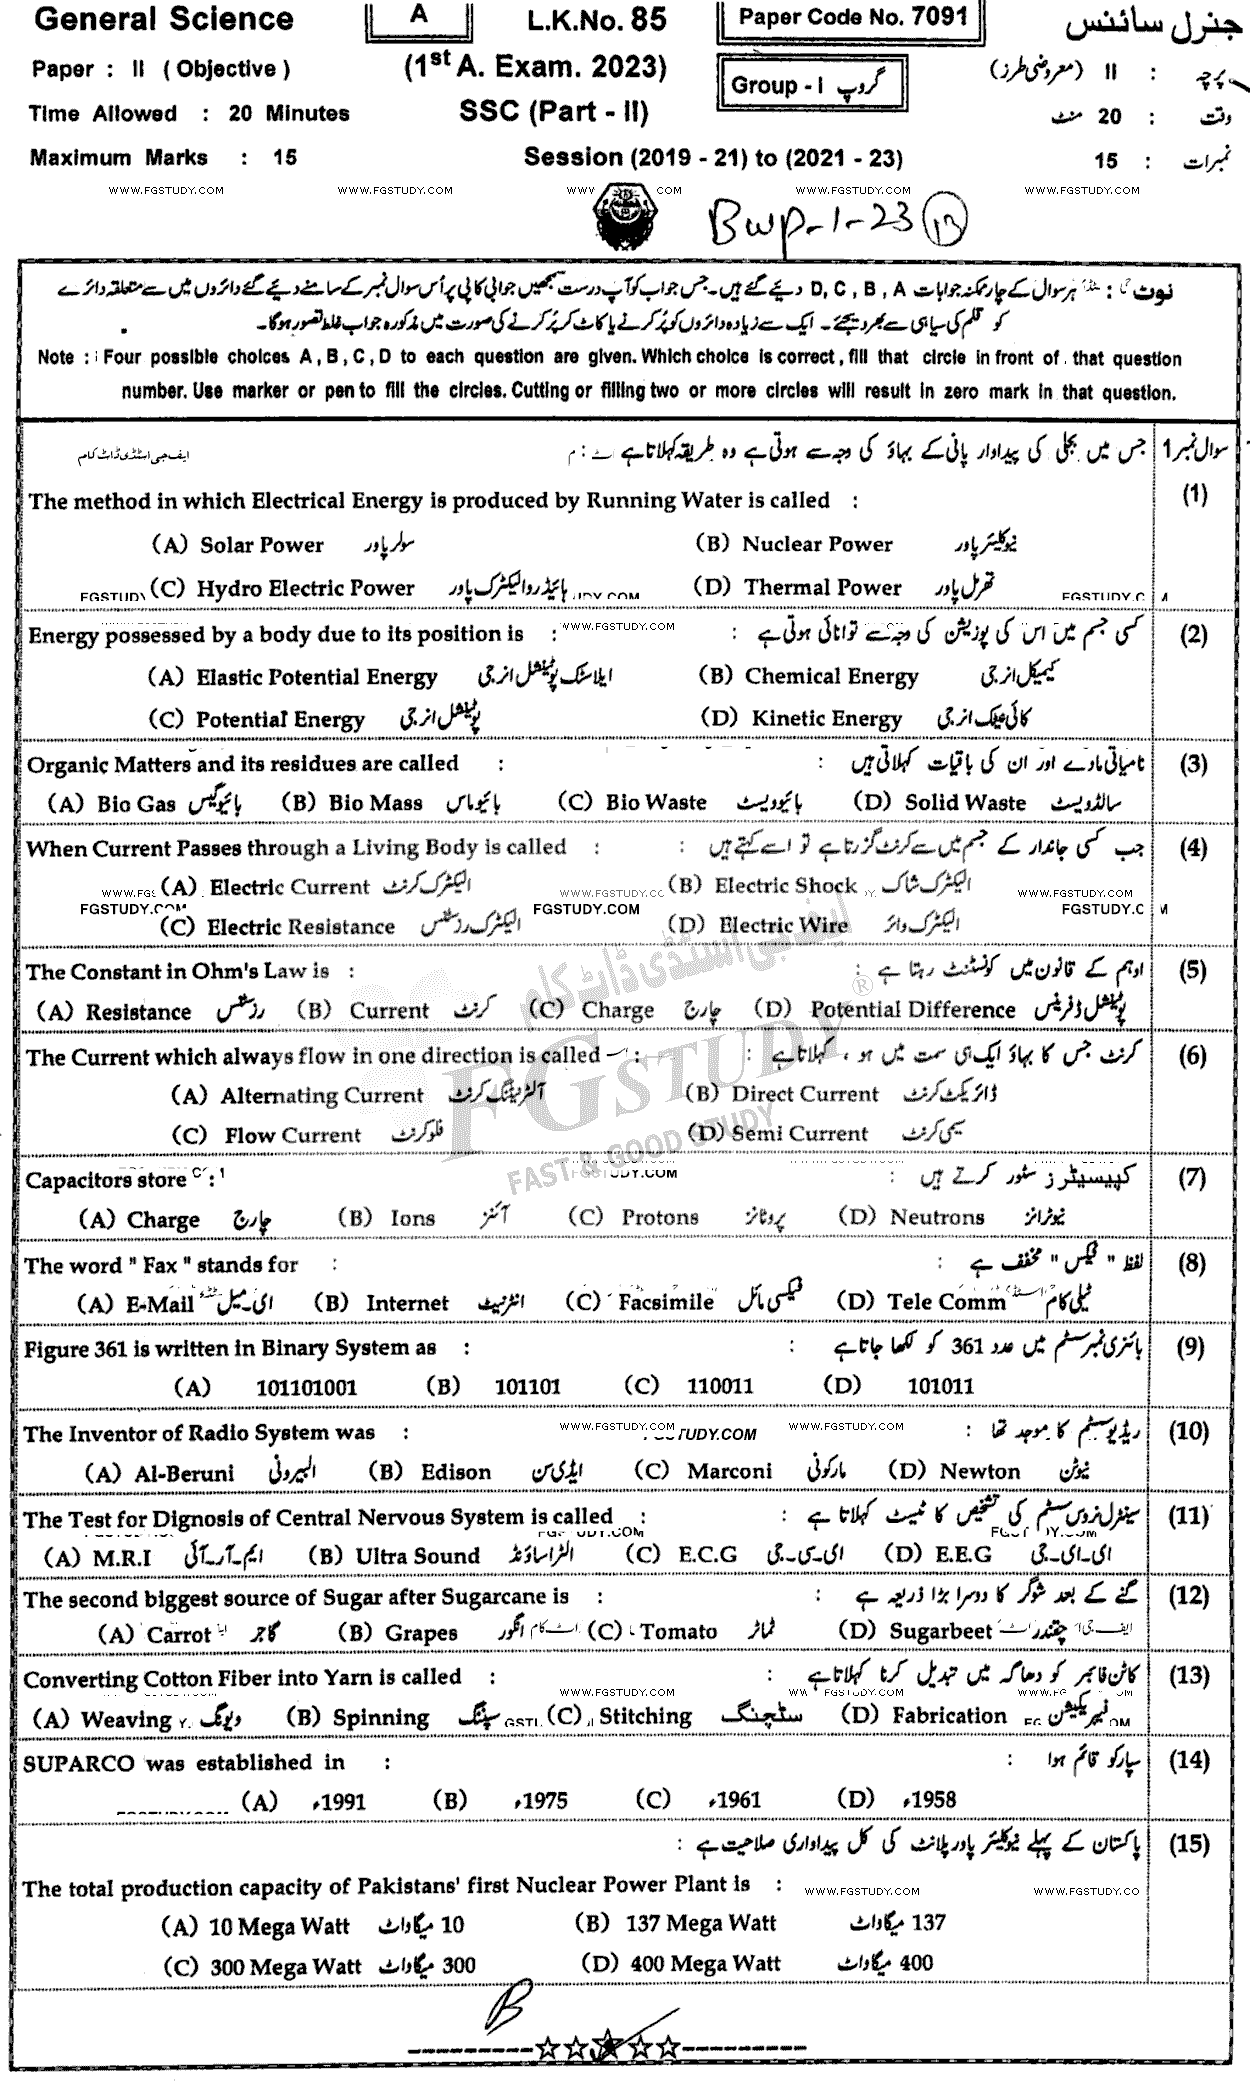 General Science A L.K.No. 85 Paper Code No. 7091 جنرل سائنس
Paper : II ( Objective ) (1st A. Exam. 2023) Group - I گروپ پرچہ : II (معروضی طرز)
Time Allowed : 20 Minutes SSC (Part - II) وقت : 20 منٹ
Maximum Marks : 15 Session (2019 - 21) to (2021 - 23) نمبرات : 15
WWW.FGSTUDY.COM WWW.FGSTUDY.COM WWW.FGSTUDY.COM WWW.FGSTUDY.COM
Bwp-1-23
نوٹ : ہر سوال کے چار ممکنہ جوابات D, C, B, A دیئے گئے ہیں۔ جس جواب کو آپ درست سمجھیں جوابی کاپی پر اُس سوال نمبر کے سامنے دیئے گئے دائروں میں سے متعلقہ دائرے
کو قلم کی سیاہی سے بھر دیجئے۔ ایک سے زیادہ دائروں کو پُر کرنے یا کاٹ کر پُر کرنے کی صورت میں مذکورہ جواب غلط تصور ہوگا۔
Note : Four possible choices A , B , C , D to each question are given. Which choice is correct , fill that circle in front of that question
number. Use marker or pen to fill the circles. Cutting or filling two or more circles will result in zero mark in that question.
سوال نمبر 1 جس میں بجلی کی پیداوار پانی کے بہاؤ کی وجہ سے ہوتی ہے وہ طریقہ کہلاتا ہے : ایف جی اسٹڈی ڈاٹ کام
The method in which Electrical Energy is produced by Running Water is called : (1)
(A) Solar Power سولر پاور (B) Nuclear Power نیوکلیئر پاور
(C) Hydro Electric Power ہائیڈرو الیکٹرک پاور (D) Thermal Power تھرمل پاور
Energy possessed by a body due to its position is : WWW.FGSTUDY.COM کسی جسم میں اس کی پوزیشن کی وجہ سے توانائی ہوتی ہے : (2)
(A) Elastic Potential Energy ایلاسٹک پوٹینشل انرجی (B) Chemical Energy کیمیکل انرجی
(C) Potential Energy پوٹینشل انرجی (D) Kinetic Energy کائی نیٹک انرجی
Organic Matters and its residues are called : نامیاتی مادے اور ان کی باقیات کہلاتی ہیں : (3)
(A) Bio Gas بائیو گیس (B) Bio Mass بائیو ماس (C) Bio Waste بائیو ویسٹ (D) Solid Waste سالڈ ویسٹ
When Current Passes through a Living Body is called : جب کسی جاندار کے جسم میں سے کرنٹ گزرتا ہے تو اسے کہتے ہیں : (4)
(A) Electric Current الیکٹرک کرنٹ (B) Electric Shock الیکٹرک شاک WWW.FGSTUDY.COM
FGSTUDY.COM FGSTUDY.COM
(C) Electric Resistance الیکٹرک رزسٹنس (D) Electric Wire الیکٹرک وائر
The Constant in Ohm's Law is : اوہم کے قانون میں کونسٹنٹ رہتا ہے : (5)
(A) Resistance رزسٹنس (B) Current کرنٹ (C) Charge چارج (D) Potential Difference پوٹینشل ڈفرینس
ایف جی اسٹڈی ڈاٹ کام
FGSTUDY ®
FAST & GOOD STUDY
The Current which always flow in one direction is called : کرنٹ جس کا بہاؤ ایک ہی سمت میں ہو ، کہلاتا ہے : (6)
(A) Alternating Current آلٹرنیٹنگ کرنٹ (B) Direct Current ڈائریکٹ کرنٹ
(C) Flow Current فلو کرنٹ (D) Semi Current سیمی کرنٹ
Capacitors store : کپیسیٹرز سٹور کرتے ہیں : (7)
(A) Charge چارج (B) Ions آئنز (C) Protons پروٹانز (D) Neutrons نیوٹرانز
The word " Fax " stands for : لفظ " فیکس " مخفف ہے : (8)
(A) E-Mail ای۔میل (B) Internet انٹرنیٹ (C) Facsimile فیکسی مائل (D) Tele Comm ٹیلی کام
Figure 361 is written in Binary System as : بائنری نمبر سسٹم میں عدد 361 کو لکھا جاتا ہے : (9)
(A) 101101001 (B) 101101 (C) 110011 (D) 101011
The Inventor of Radio System was : WWW.FGSTUDY.COM WWW.FGSTUDY.COM ریڈیو سسٹم کا موجد تھا : (10)
(A) Al-Beruni البیرونی (B) Edison ایڈی سن (C) Marconi مارکونی (D) Newton نیوٹن
The Test for Dignosis of Central Nervous System is called : سینٹرل نروس سسٹم کی تشخیص کا ٹیسٹ کہلاتا ہے : (11)
(A) M.R.I ایم۔آر۔آئی (B) Ultra Sound الٹرا ساؤنڈ (C) E.C.G ای۔سی۔جی (D) E.E.G ای۔ای۔جی
The second biggest source of Sugar after Sugarcane is : گنے کے بعد شوگر کا دوسرا بڑا ذریعہ ہے : (12)
(A) Carrot گاجر (B) Grapes انگور (C) Tomato ٹماٹر (D) Sugarbeet چقندر
Converting Cotton Fiber into Yarn is called : کاٹن فائبر کو دھاگہ میں تبدیل کرنا کہلاتا ہے : (13)
WWW.FGSTUDY.COM
(A) Weaving ویونگ (B) Spinning سپننگ (C) Stitching سٹچنگ (D) Fabrication فیبریکیشن
SUPARCO was established in : سپارکو قائم ہوا : (14)
(A) 1991ء (B) 1975ء (C) 1961ء (D) 1958ء
پاکستان کے پہلے نیوکلیئر پاور پلانٹ کی کل پیداواری صلاحیت ہے : (15)
The total production capacity of Pakistans' first Nuclear Power Plant is : WWW.FGSTUDY.COM WWW.FGSTUDY.CO
(A) 10 Mega Watt 10 میگاواٹ (B) 137 Mega Watt 137 میگاواٹ
(C) 300 Mega Watt 300 میگاواٹ (D) 400 Mega Watt 400 میگاواٹ
B